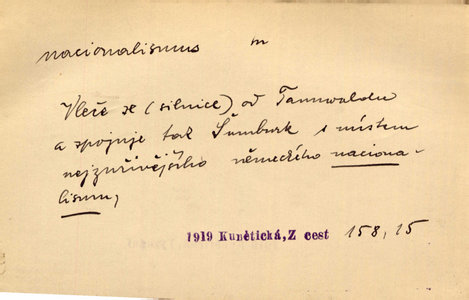 nacionalismus m
Vleče se (silnice) od Tannwaldu
a spojuje tak Šumburk s místem
nejzuřivějšího německého naciona-
lismu,
1919 Kunětická, Z cest 158, 15